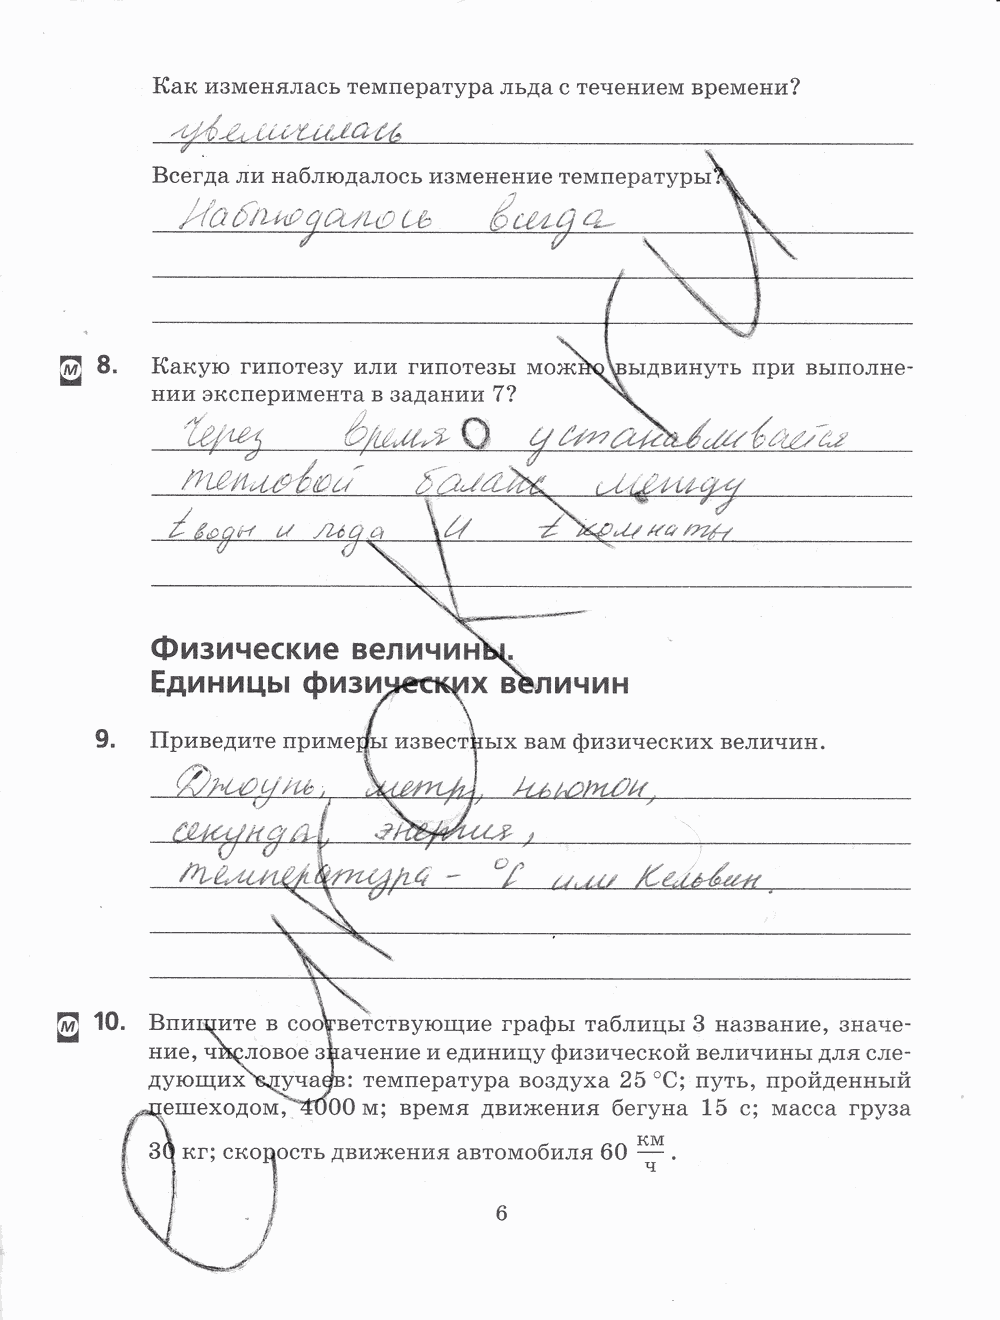 Как изменялась температура льда с течением времени?
увеличилась
Всегда ли наблюдалось изменение температуры?
Наблюдалось всегда
М 8. Какую гипотезу или гипотезы можно выдвинуть при выполне-
нии эксперимента в задании 7?
Через время устанавливается
тепловой баланс между
t воды и льда и t комнаты
Физические величины.
Единицы физических величин
9. Приведите примеры известных вам физических величин.
Джоуль, метр, ньютон,
секунда, энергия,
температура – °C или Кельвин.
М 10. Впишите в соответствующие графы таблицы 3 название, значе-
ние, числовое значение и единицу физической величины для сле-
дующих случаев: температура воздуха 25 °С; путь, пройденный
пешеходом, 4000 м; время движения бегуна 15 с; масса груза
30 кг; скорость движения автомобиля 60 км/ч .
6